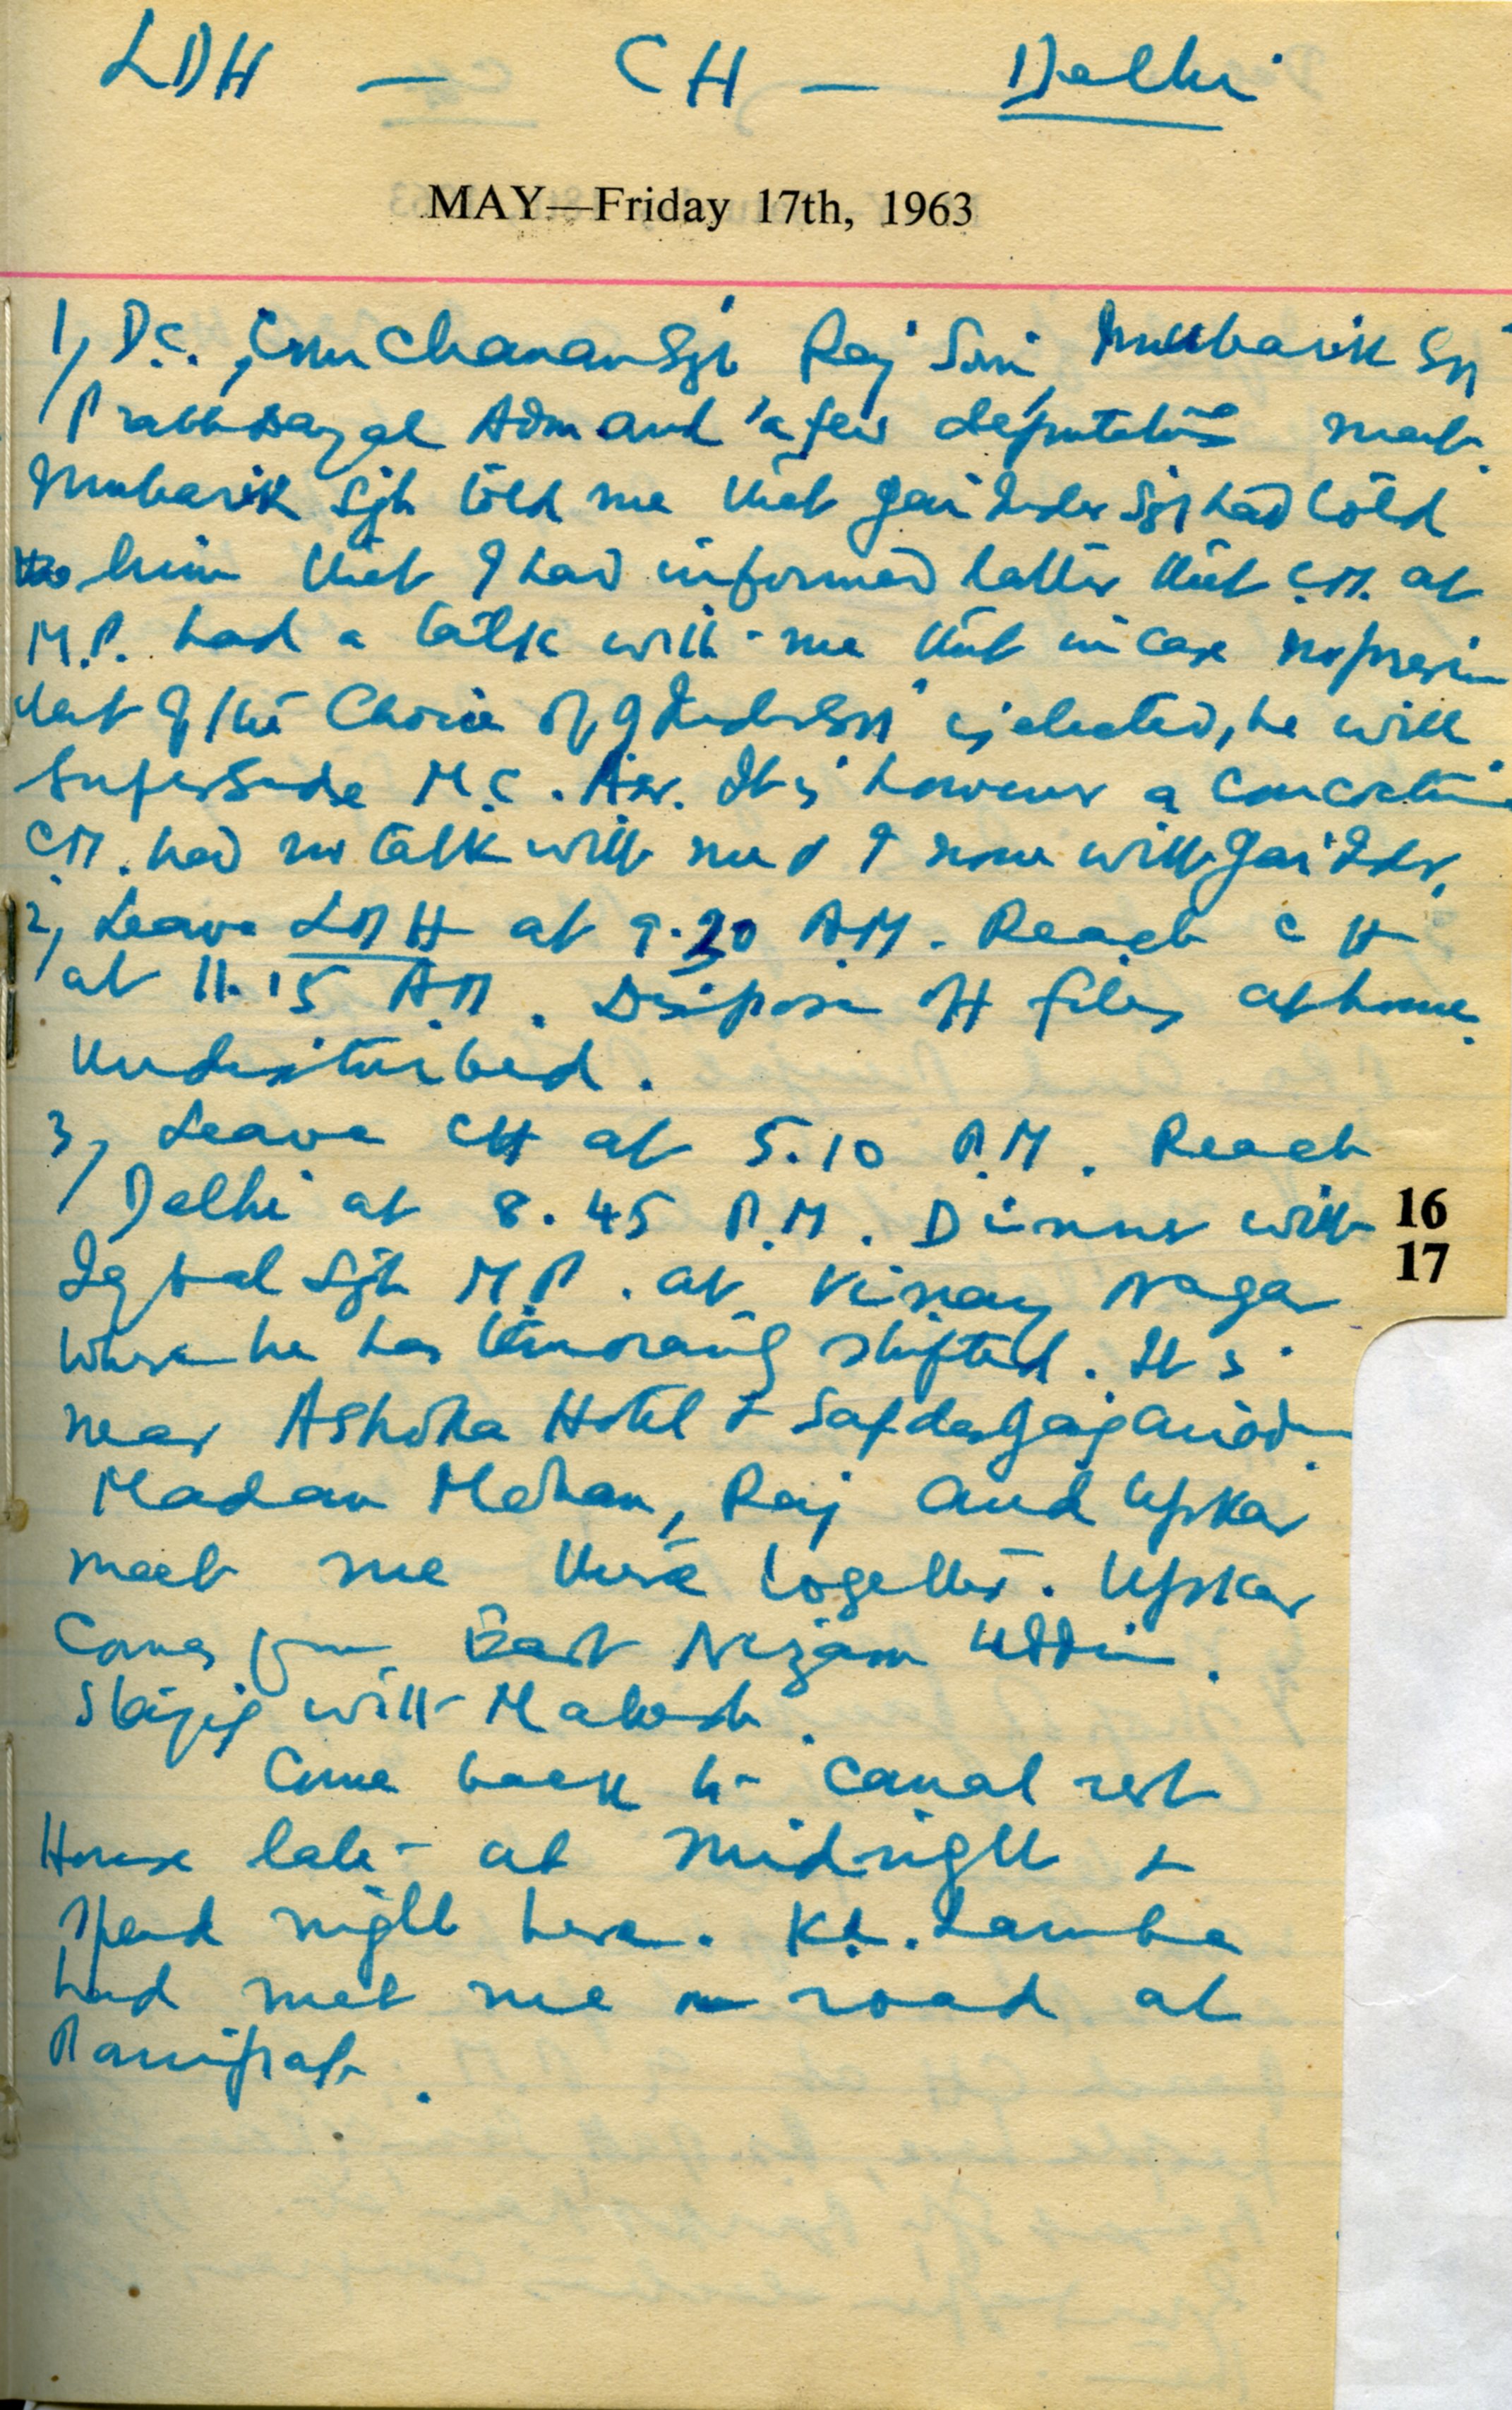 LDH — CH — Delhi
MAY—Friday 17th, 1963
1, D.C., Chanan Sgh Raj Soni, Mubarik Sgh
Prabhdayal Adm and a few deputations meet.
Mubarik Sgh told me that Jai Inder Sgh had told
him that I had informed latter that C.M. at
M.P. had a talk with me that in case no presi
dent of the Choice of J Inder Sgh is elected, he will
Supersede M.C. Asr. It is however a concoction
C.M. had no talk with me & I none with Jai Inder.
2, Leave LDH at 9.20 AM. Reach CH
at 11.15 A.M. Dispose off files at home
Undisturbed.
3, Leave CH at 5.10 P.M. Reach
Delhi at 8.45 P.M. Dinner with
16
Iqbal Sgh M.P. at Vinay Nagar
17
where he has shifted. It is
near Ashoka Hotel & Safdarjang
Madan Mohan, Raj and Upkar
meet me there together. Upkar
Comes from East Nizam Uddin.
with
Come back to Canal rest
House late at midnight &
spend night here. Kh. Lamba
had met me on road at
Panipat.